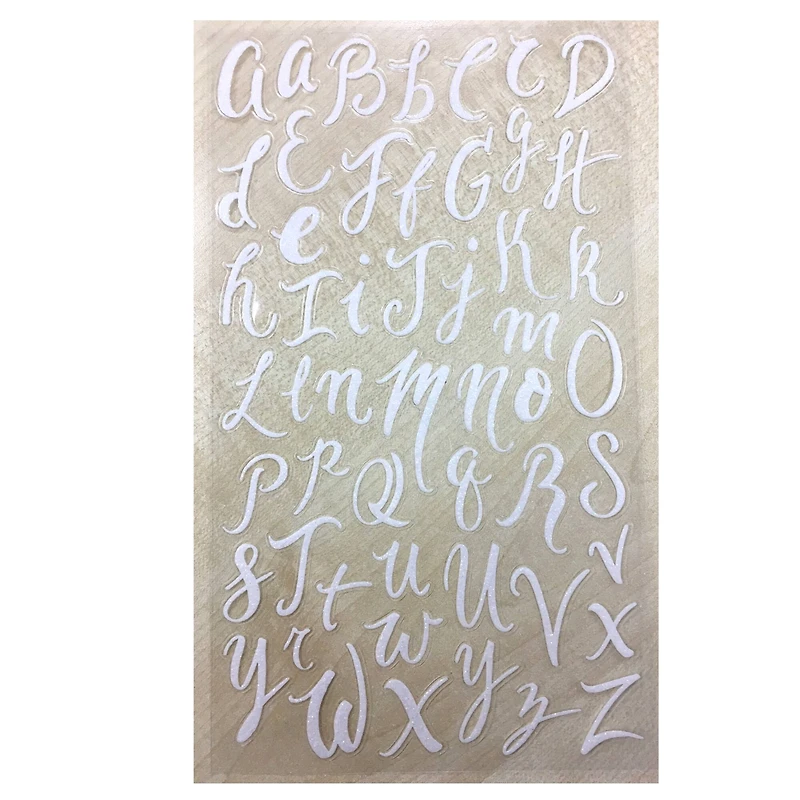 A a B b C c D
d E F f G g H
h e I i J j K k
L l n M n m o O
P p Q q R S
s T t u U V v
y r W w X Y z x Z